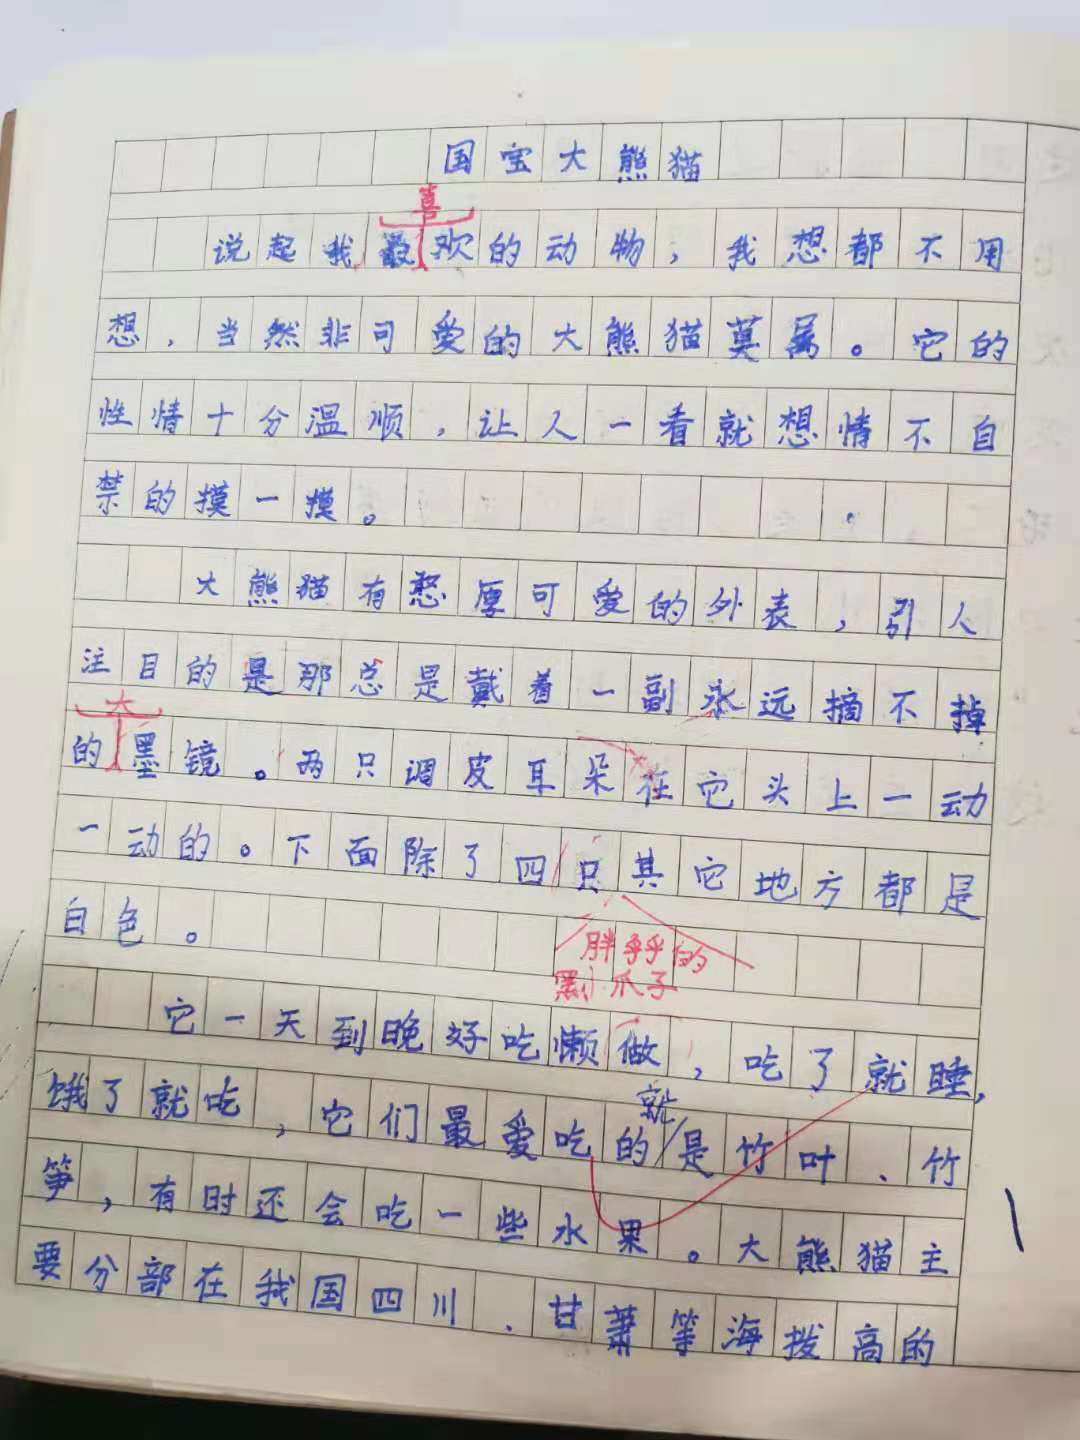 国宝大熊猫
喜
说起我最欢的动物，我想都不用
想，当然非可爱的大熊猫莫属。它的
性情十分温顺，让人一看就想情不自
禁的摸一摸。
大熊猫有憨厚可爱的外表，引人
注目的是那总是戴着一副永远摘不掉
大
的墨镜。两只调皮耳朵在它头上一动
一动的。下面除了四只其它地方都是
白色。
胖乎乎的
黑小爪子
它一天到晚好吃懒做，吃了就睡，
饿了就吃，它们最爱吃的就是竹叶、竹
笋，有时还会吃一些水果。大熊猫主
要分部在我国四川、甘萧等海拨高的